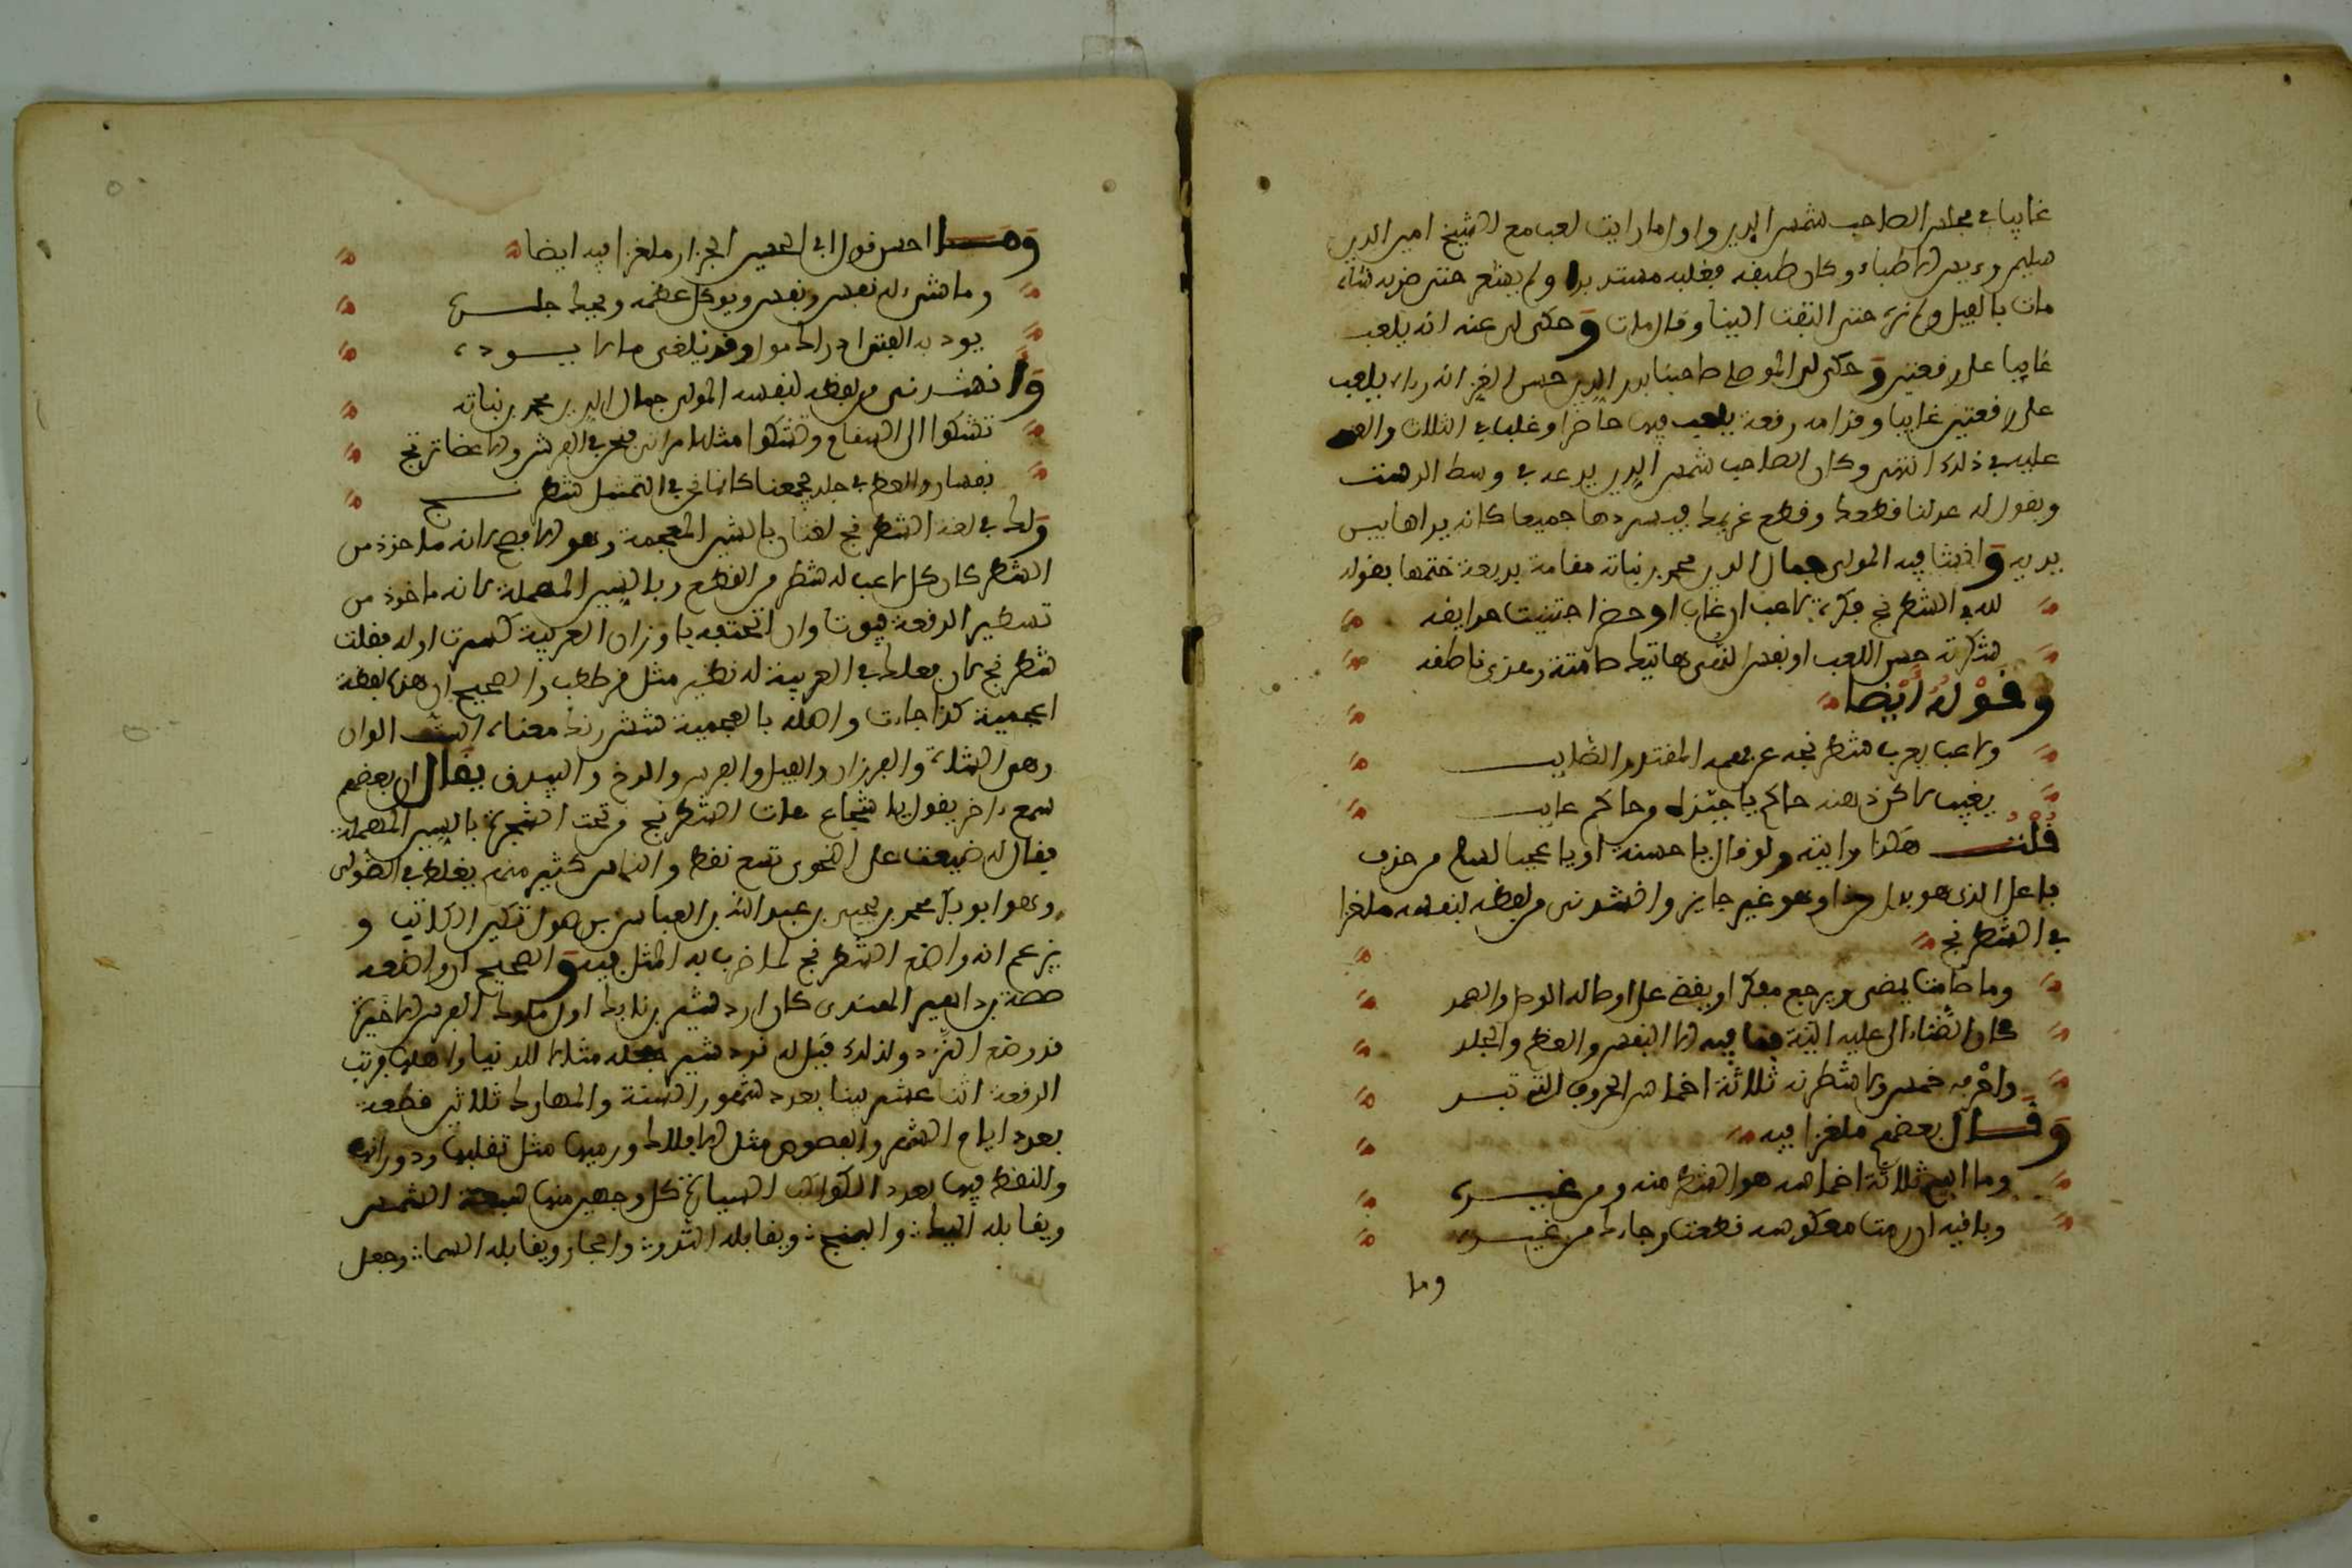 غايبا في مجلس الصاحب شمس الدين واول ما رايت لعب مع الشيخ امين الدين
سليم رءيس الاطباء وكان طبيقه فغلبه مستدبرا ولم يشعر حتى ضربه شاه
مات بالفيل ولم نره حتى التفت الينا وقال مات وحكى لي عنه انه يلعب
غايبا على رقعتين وحكى لي المولى صاحبنا بدر الدين حسن الغزي انه رءاه يلعب
على رقعتين غايبا وقدامه رقعة يلعب فيها حاضرا وغلب في الثلاث
عليه في ذلك انتهى وكان الصاحب شمس الدين يدعه في وسط الدست
ويقول له عد لنا قطعك وقطع غريمك فيسردها جميعا كانه يراها بين
يديه وانشا فيه المولى جمال الدين محمد بن نباتة مقامة بديعة ختمها بقوله
لله في الشطرنج فكرة لاعب ان غاب او حضر اجتنيت حدايقه
شكرته حسن اللعب او نفس لنفس هاتيك صامتة وهذي ناطقه
وقوله ايضا
ولاعب يعرب شطرنجه عن فهمه المقتدر الصايب
يغيب لاكن ذهنه حاكم يا حبذا من حاكم غايب
قلت هكذا رايته ولو قال يا حسنه او يا عجبا لسلم من حذف
فاعل الذي هو بدل من ذا وهو غير جايز وانشدني من لفظه لنفسه ملغزا
في الشطرنج
وما صامت يمضي ويرجع مفكرا ويقضي على اوصاله الوصل والصد
كان الفناءالى عليه الية فنا فيه الا النفس والعظم والجلد
واحرفه خمس ولا شطر نه ثلاثة اخماس الحروف التي تبد
وقال بعضهم ملغزا فيه
وما اسم ثلاثة اخماسه هو الشطر منه ومن غيره
وباقيه ان رمت معكوسه قطعت رجاءك من غيره
وما
ومن احسن قول ابي الحسين الجزار ملغزا فيه ايضا
وما شيء له نفس ونفس ويوكل عظمه ويحك جلده
يود به الفتى ادراك سول وقد يلقى به ما لا يوده
وانشدني من لفظه لنفسه المولى جمال الدين محمد بن نباتة
نشكوا الى السقام وتشكوا مثله امراتي فنحن في الفرش والاعضا ترتج
نفسان والعظم في جلد يجمعنا كاننا نحن في التمثيل شطرنج
ولك في لغة الشطرنج لغتان بالشين المعجمة وهو الافصح لانه ماخوذ من
الشطر كان كل لاعب له شطر من القطع وبالسين المهملة لانه ماخوذ من
تسطير الرقعة بيوتا وان الحقته باوزان العربية كسرت اوله فقلت
شطرنج لان فعلل في العربية له نظير مثل قرطعب والصحيح ان هذه لفظة
اعجمية كذا جاءت واصله بالعجمية شش رنك معناه الستة الوان
وهو الشاة والفرزان والفيل والفرس والرخ والبيدق يقال ان بعضهم
سمع ءاخر يقول يا شجاع هات الشطرنج من تحت الشجرة بالسين المهملة
فقال له ضيعت على النحوي تسع نقط والناس كثير منهم يغلط في الصولي
وهو ابو بكر محمد بن يحيى بن عبد الله بن العباس بن صول تكين الكاتب و
يزعم انه واضع الشطرنج لما ضرب به المثل فيه والصحيح ان واضعه
صصة بن داهير الهندي كان اردشير بن بابك اول ملوك الفرس الاخيرة
قد وضع النرد ولذلك قيل له نردشير جعله مثالا للدنيا واهلها فرتب
الرقعة اثنا عشر بيتا بعدد شهور السنة والمهارك ثلاثين قطعة
بعدد ايام الشهر والفصوص مثل الافلاك ورميها مثل تقلبها ودورانها
والنقط فيها بعدد الكواكب السيارة كل وجهين منها سبعة الشمس
ويقابله اليك والبنج ويقابله الدو والجهار ويقابله السا وجعل